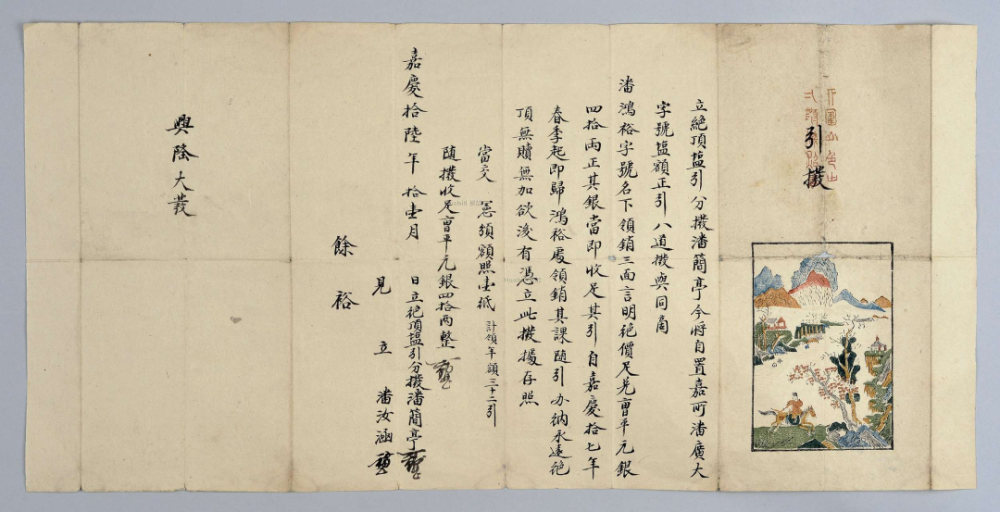 引撥
立絶頂塩引分撥潘蘭亭今將自置嘉所潘廣大
字號塩額正引八道撥與同局
潘鴻裕字號名下領銷三面言明絶價足兑曹平元銀
四拾兩正其銀當即收足其引自嘉慶拾七年
春季起即歸鴻裕處領銷其課隨引办納永遠絶
頂無贖無加欲後有憑立此撥據存照
當交 憲頒額照壹紙 計領年額三十二引
隨撥收足曹平元銀四拾兩整
嘉慶拾陸年拾壹月 日立絶頂塩引分撥潘蘭亭
見立 潘汝涵
餘裕
興隆大發